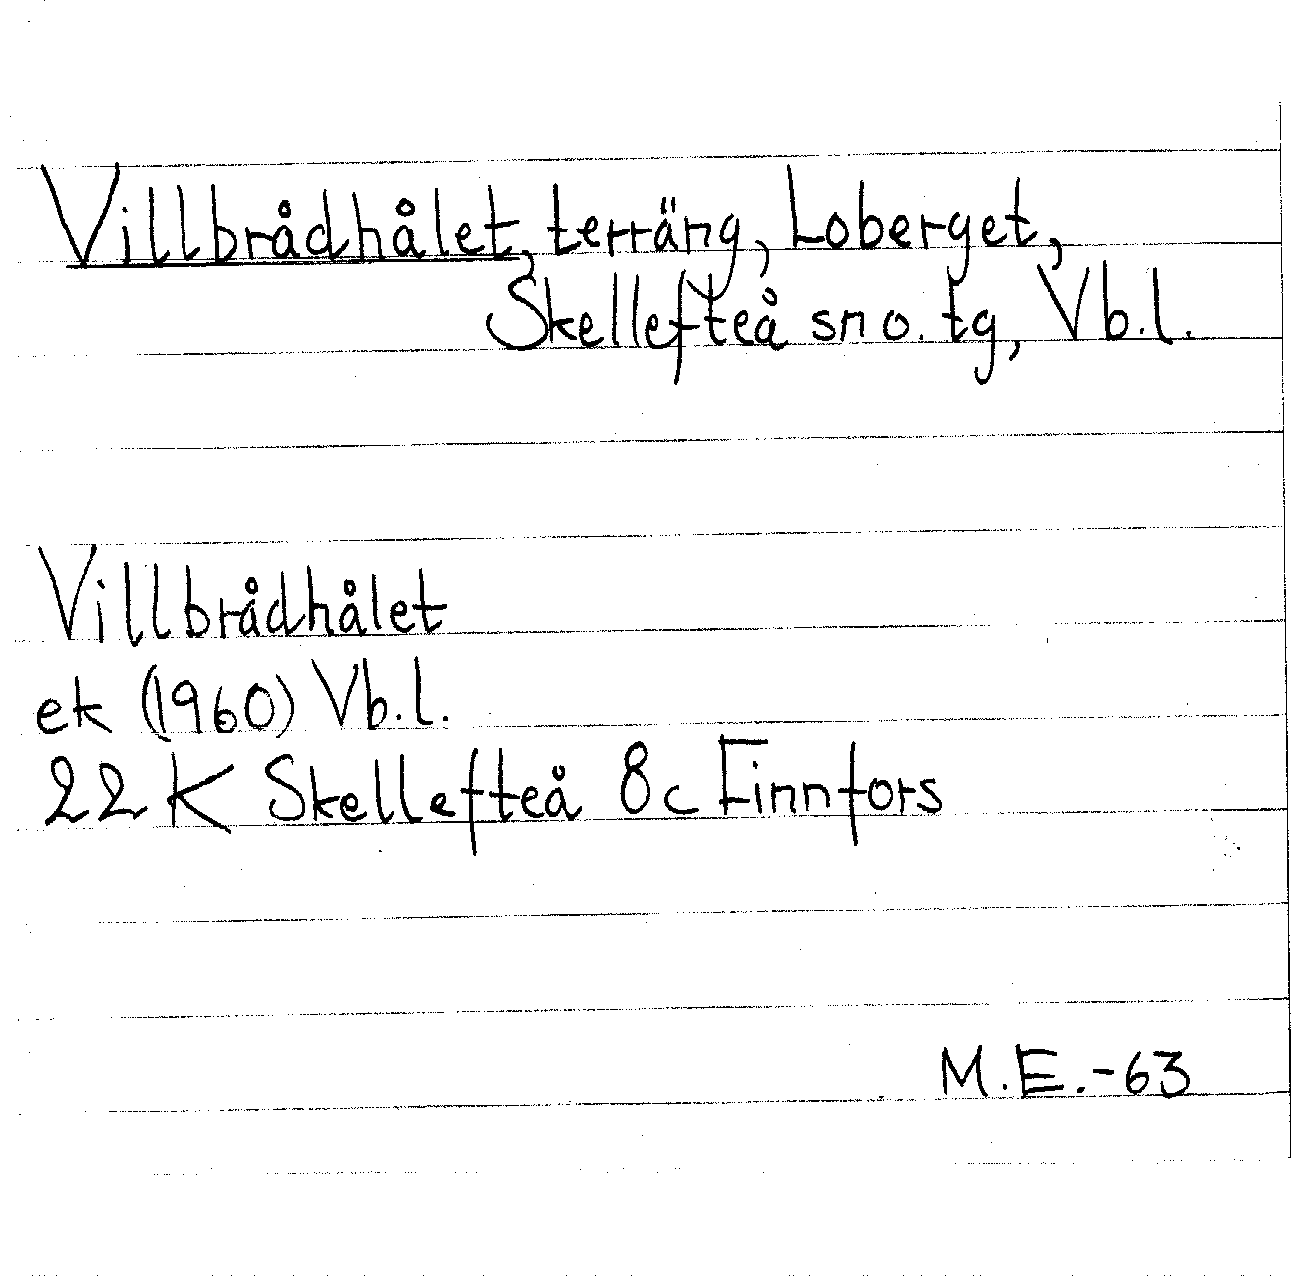 Villbrådhålet, terräng, Loberget,
Skellefteå sn o. tg, Vb.l.
Villbrådhålet
ek (1960) Vb.l.
22 K Skellefteå 8c Finnfors
M.E.-63